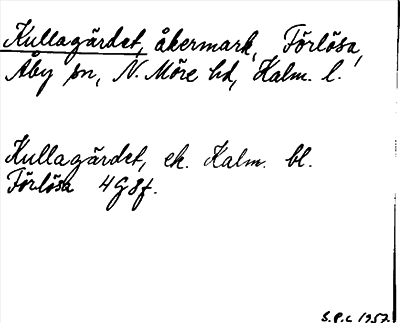 Kullagärdet, åkermark, Förlösa,
Åby sn, N. Möre hd, Kalm. l.
Kullagärdet, ek. Kalm. bl.
Förlösa 4G8f.
S.P.c 1957.